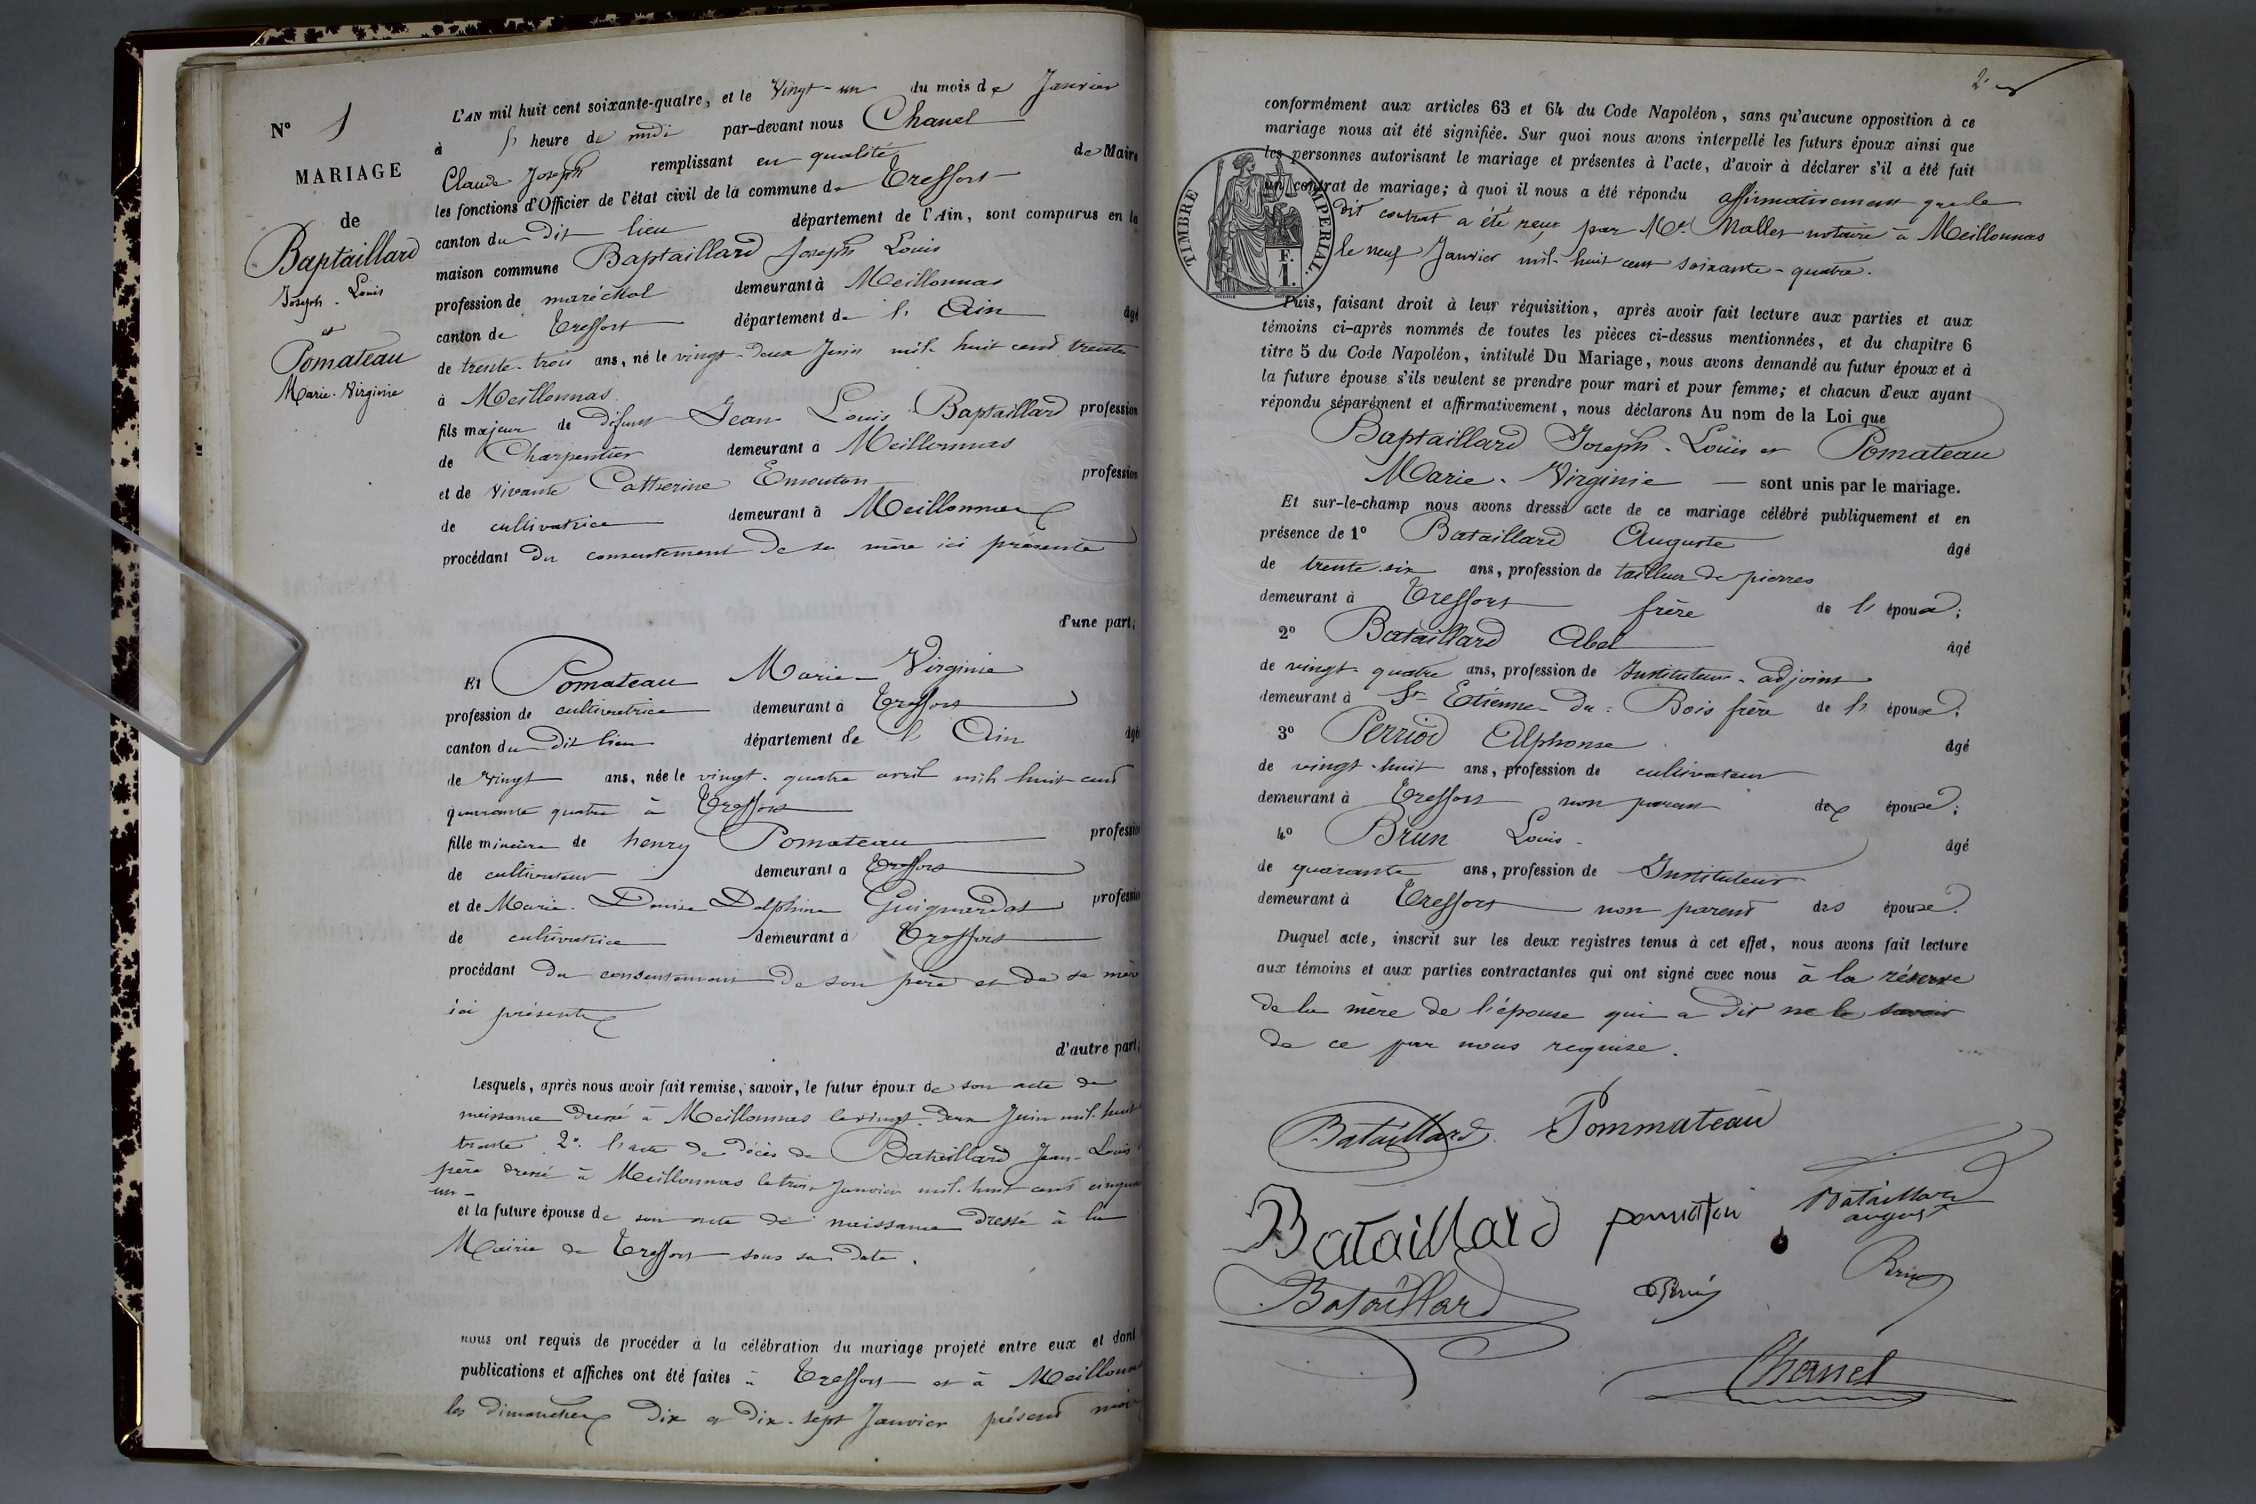 N° 1
MARIAGE
de
Baptaillard
Joseph-Louis
et
Pomateau
Marie-Virginie
L'AN mil huit cent soixante-quatre, et le vingt-un du mois de Janvier
à l' heure de midi par-devant nous Chanel
Claude Joseph remplissant en qualité de Maire
les fonctions d'Officier de l'état civil de la commune de Treffort
canton du dit lieu département de l'Ain, sont comparus en la
maison commune Baptaillard Joseph Louis
profession de maréchal demeurant à Meillonnas
canton de Treffort département de l'Ain âgé
de trente-trois ans, né le vingt-deux Juin mil-huit cent trente
à Meillonnas
fils majeur de défunt Jean Louis Baptaillard profession
de Charpentier demeurant à Meillonnas
et de vivante Catherine Emouton profession
de cultivatrice demeurant à Meillonnas
procédant du consentement de sa mère ici présente
d'une part;
Et Pomateau Marie-Virginie
profession de cultivatrice demeurant à Treffort
canton du dit lieu département de l'Ain âgé
de vingt ans, née le vingt-quatre avril mil-huit cent
quarante quatre à Treffort
fille mineure de henry Pomateau profession
de cultivateur demeurant à Treffort
et de Marie-Denise Delphine Guignardat profession
de cultivatrice demeurant à Treffort
procédant du consentement de son père et de sa mère
ici présents
d'autre part;
Lesquels, après nous avoir fait remise, savoir, le futur époux de son acte de
naissance dressé à Meillonnas le vingt-deux Juin mil-huit
trente 2° l'acte de décès de Bataillard Jean-Louis
père dressé à Meillonnas le trois Janvier mil-huit cent cinquante
un
et la future épouse de son acte de naissance dressé à la
Mairie de Treffort sous sa date.
nous ont requis de procéder à la célébration du mariage projeté entre eux et dont
publications et affiches ont été faites à Treffort et à Meillonnas
les dimanches dix et dix-sept Janvier présent mois
2
conformément aux articles 63 et 64 du Code Napoléon, sans qu'aucune opposition à ce
mariage nous ait été signifiée. Sur quoi nous avons interpellé les futurs époux ainsi que
les personnes autorisant le mariage et présentes à l'acte, d'avoir à déclarer s'il a été fait
un contrat de mariage; à quoi il nous a été répondu affirmativement que le
dit contrat a été reçu par Me Mallet notaire à Meillonnas
le neuf Janvier mil-huit cent soixante-quatre.
TIMBRE IMPERIAL.
F.
1.
Puis, faisant droit à leur réquisition, après avoir fait lecture aux parties et aux
témoins ci-après nommés de toutes les pièces ci-dessus mentionnées, et du chapitre 6
titre 5 du Code Napoléon, intitulé Du Mariage, nous avons demandé au futur époux et à
la future épouse s'ils veulent se prendre pour mari et pour femme; et chacun d'eux ayant
répondu séparément et affirmativement, nous déclarons Au nom de la Loi que
Baptaillard Joseph-Louis et Pomateau
Marie-Virginie sont unis par le mariage.
Et sur-le-champ nous avons dressé acte de ce mariage célébré publiquement et en
présence de 1° Bataillard Auguste âgé
de trente six ans, profession de tailleur de pierres
demeurant à Treffort frère de l' époux;
2° Bataillard Abel âgé
de vingt-quatre ans, profession de Instituteur-adjoint
demeurant à St Etienne-du-Bois frère de l' époux;
3° Perriod Alphonse âgé
de vingt-huit ans, profession de cultivateur
demeurant à Treffort non parent des époux;
4° Brun Louis âgé
de quarante ans, profession de Instituteur
demeurant à Treffort non parent des époux.
Duquel acte, inscrit sur les deux registres tenus à cet effet, nous avons fait lecture
aux témoins et aux parties contractantes qui ont signé avec nous à la réserve
de la mère de l'épouse qui a dit ne le savoir
de ce par nous requise.
Bataillard Pommateau
Bataillard
Bataillard
august
Brun
Bataillard
Chanel